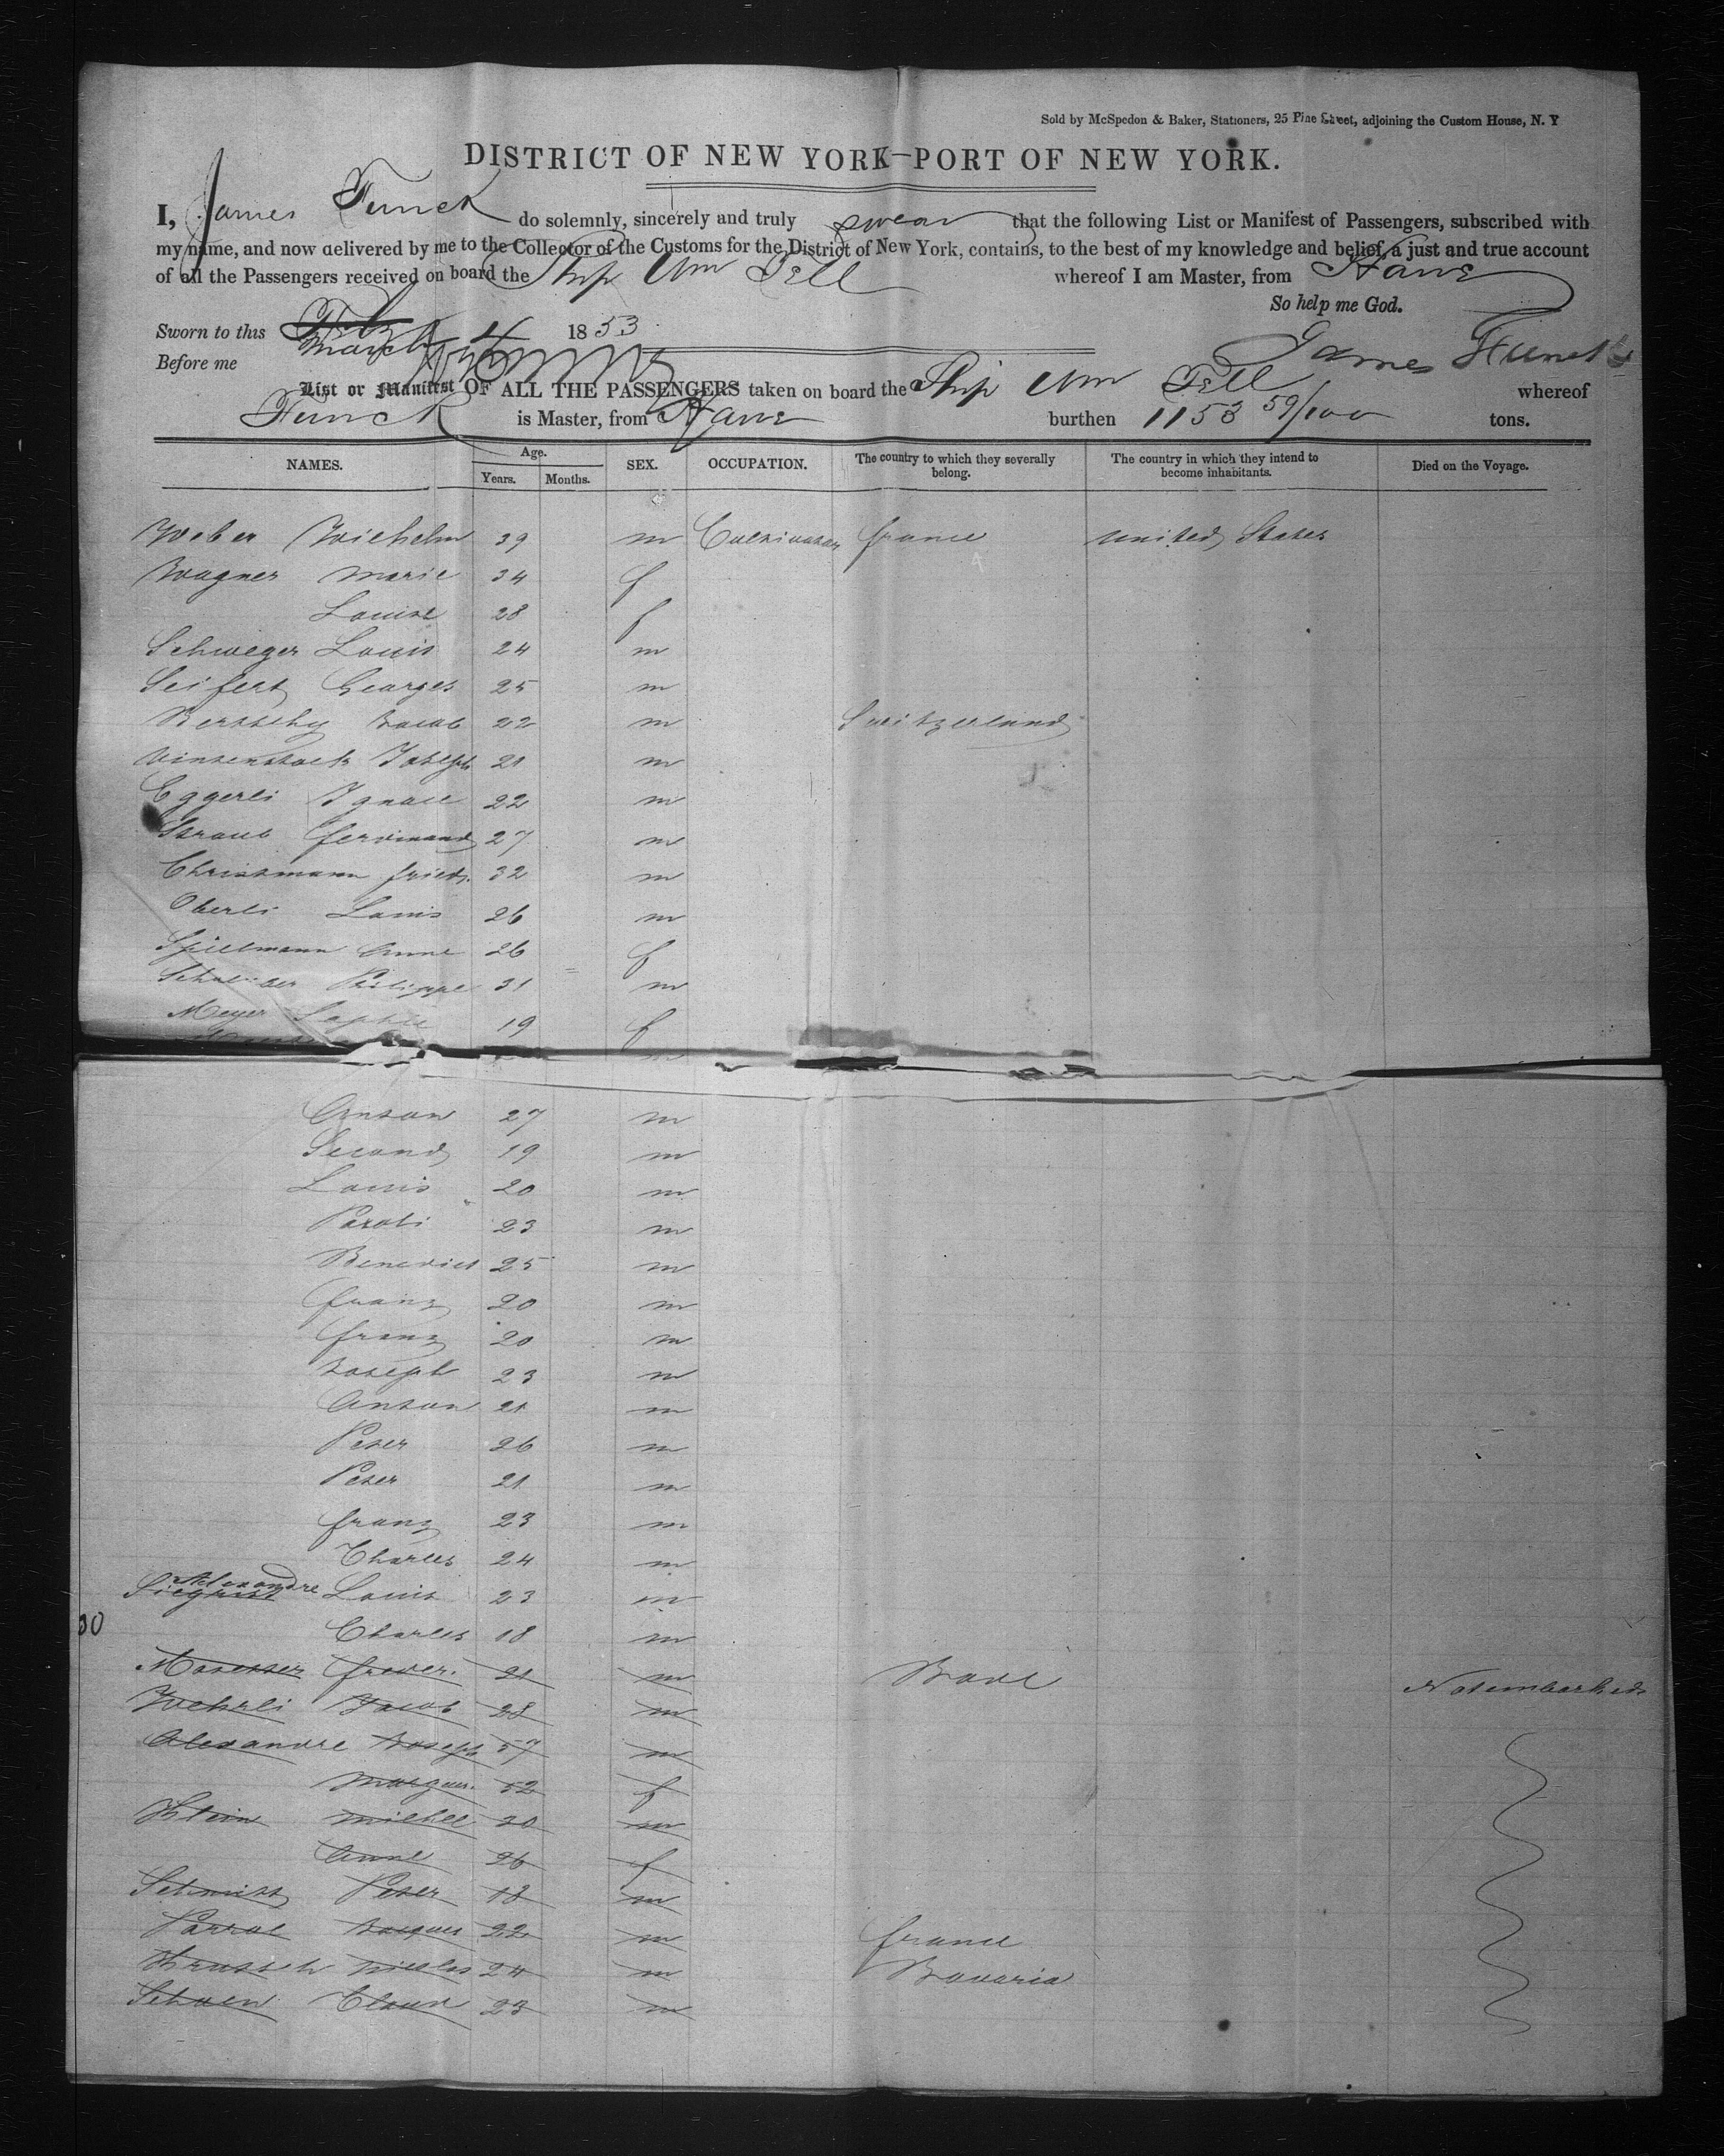 Sold by McSpedon & Baker, Stationers, 25 Pine Street, adjoining the Custom House, N. Y
DISTRICT OF NEW YORK—PORT OF NEW YORK.
I, James Funck do solemnly, sincerely and truly swear that the following List or Manifest of Passengers, subscribed with
my name, and now delivered by me to the Collector of the Customs for the District of New York, contains, to the best of my knowledge and belief, a just and true account
of all the Passengers received on board the Ship Wm Tell whereof I am Master, from Havre
So help me God.
Sworn to this March 4 1853
Before me
James Funck
List or Manifest OF ALL THE PASSENGERS taken on board the Ship Wm Tell whereof
Funck is Master, from Havre burthen 1153 59/100 tons.
NAMES. Age. Years. Months. SEX. OCCUPATION. The country to which they severally belong. The country in which they intend to become inhabitants. Died on the Voyage.
Weber Wilhelm 39 m Cultivator france united States
Wagner Marie 34 f
Louise 28 f
Schweger Louis 24 m
Seifert Georges 25 m
Bertschy Jacob 22 m Switzerland
Joseph 21 m
Eggerli Ignace 22 m
Straub ferdinand 27 m
Christmann friedr. 32 m
Oberli Louis 26 m
Spielmann Anne 26 f
Philippe 31 m
Meyer Sophie 19 f
m
Anton 27 m
Second 19 m
Louis 20 m
23 m
Benedict 25 m
franz 20 m
franz 20 m
Joseph 23 m
Anton 21 m
Peter 26 m
Peter 21 m
franz 23 m
Charles 24 m
Alexandre
Siegrist Louis 23 m
30 Charles 18 m
frider. 21 m Bade Not embarked
Wehrli Jacob 28 m
Alexandre Joseph 57 m
Marguer. 52 f
Klein Michel 30 m
Anne 26 f
Schmitt Peter 18 m
Jacques 22 m france
Nicolas 24 m Bavaria
Schoen 23 m